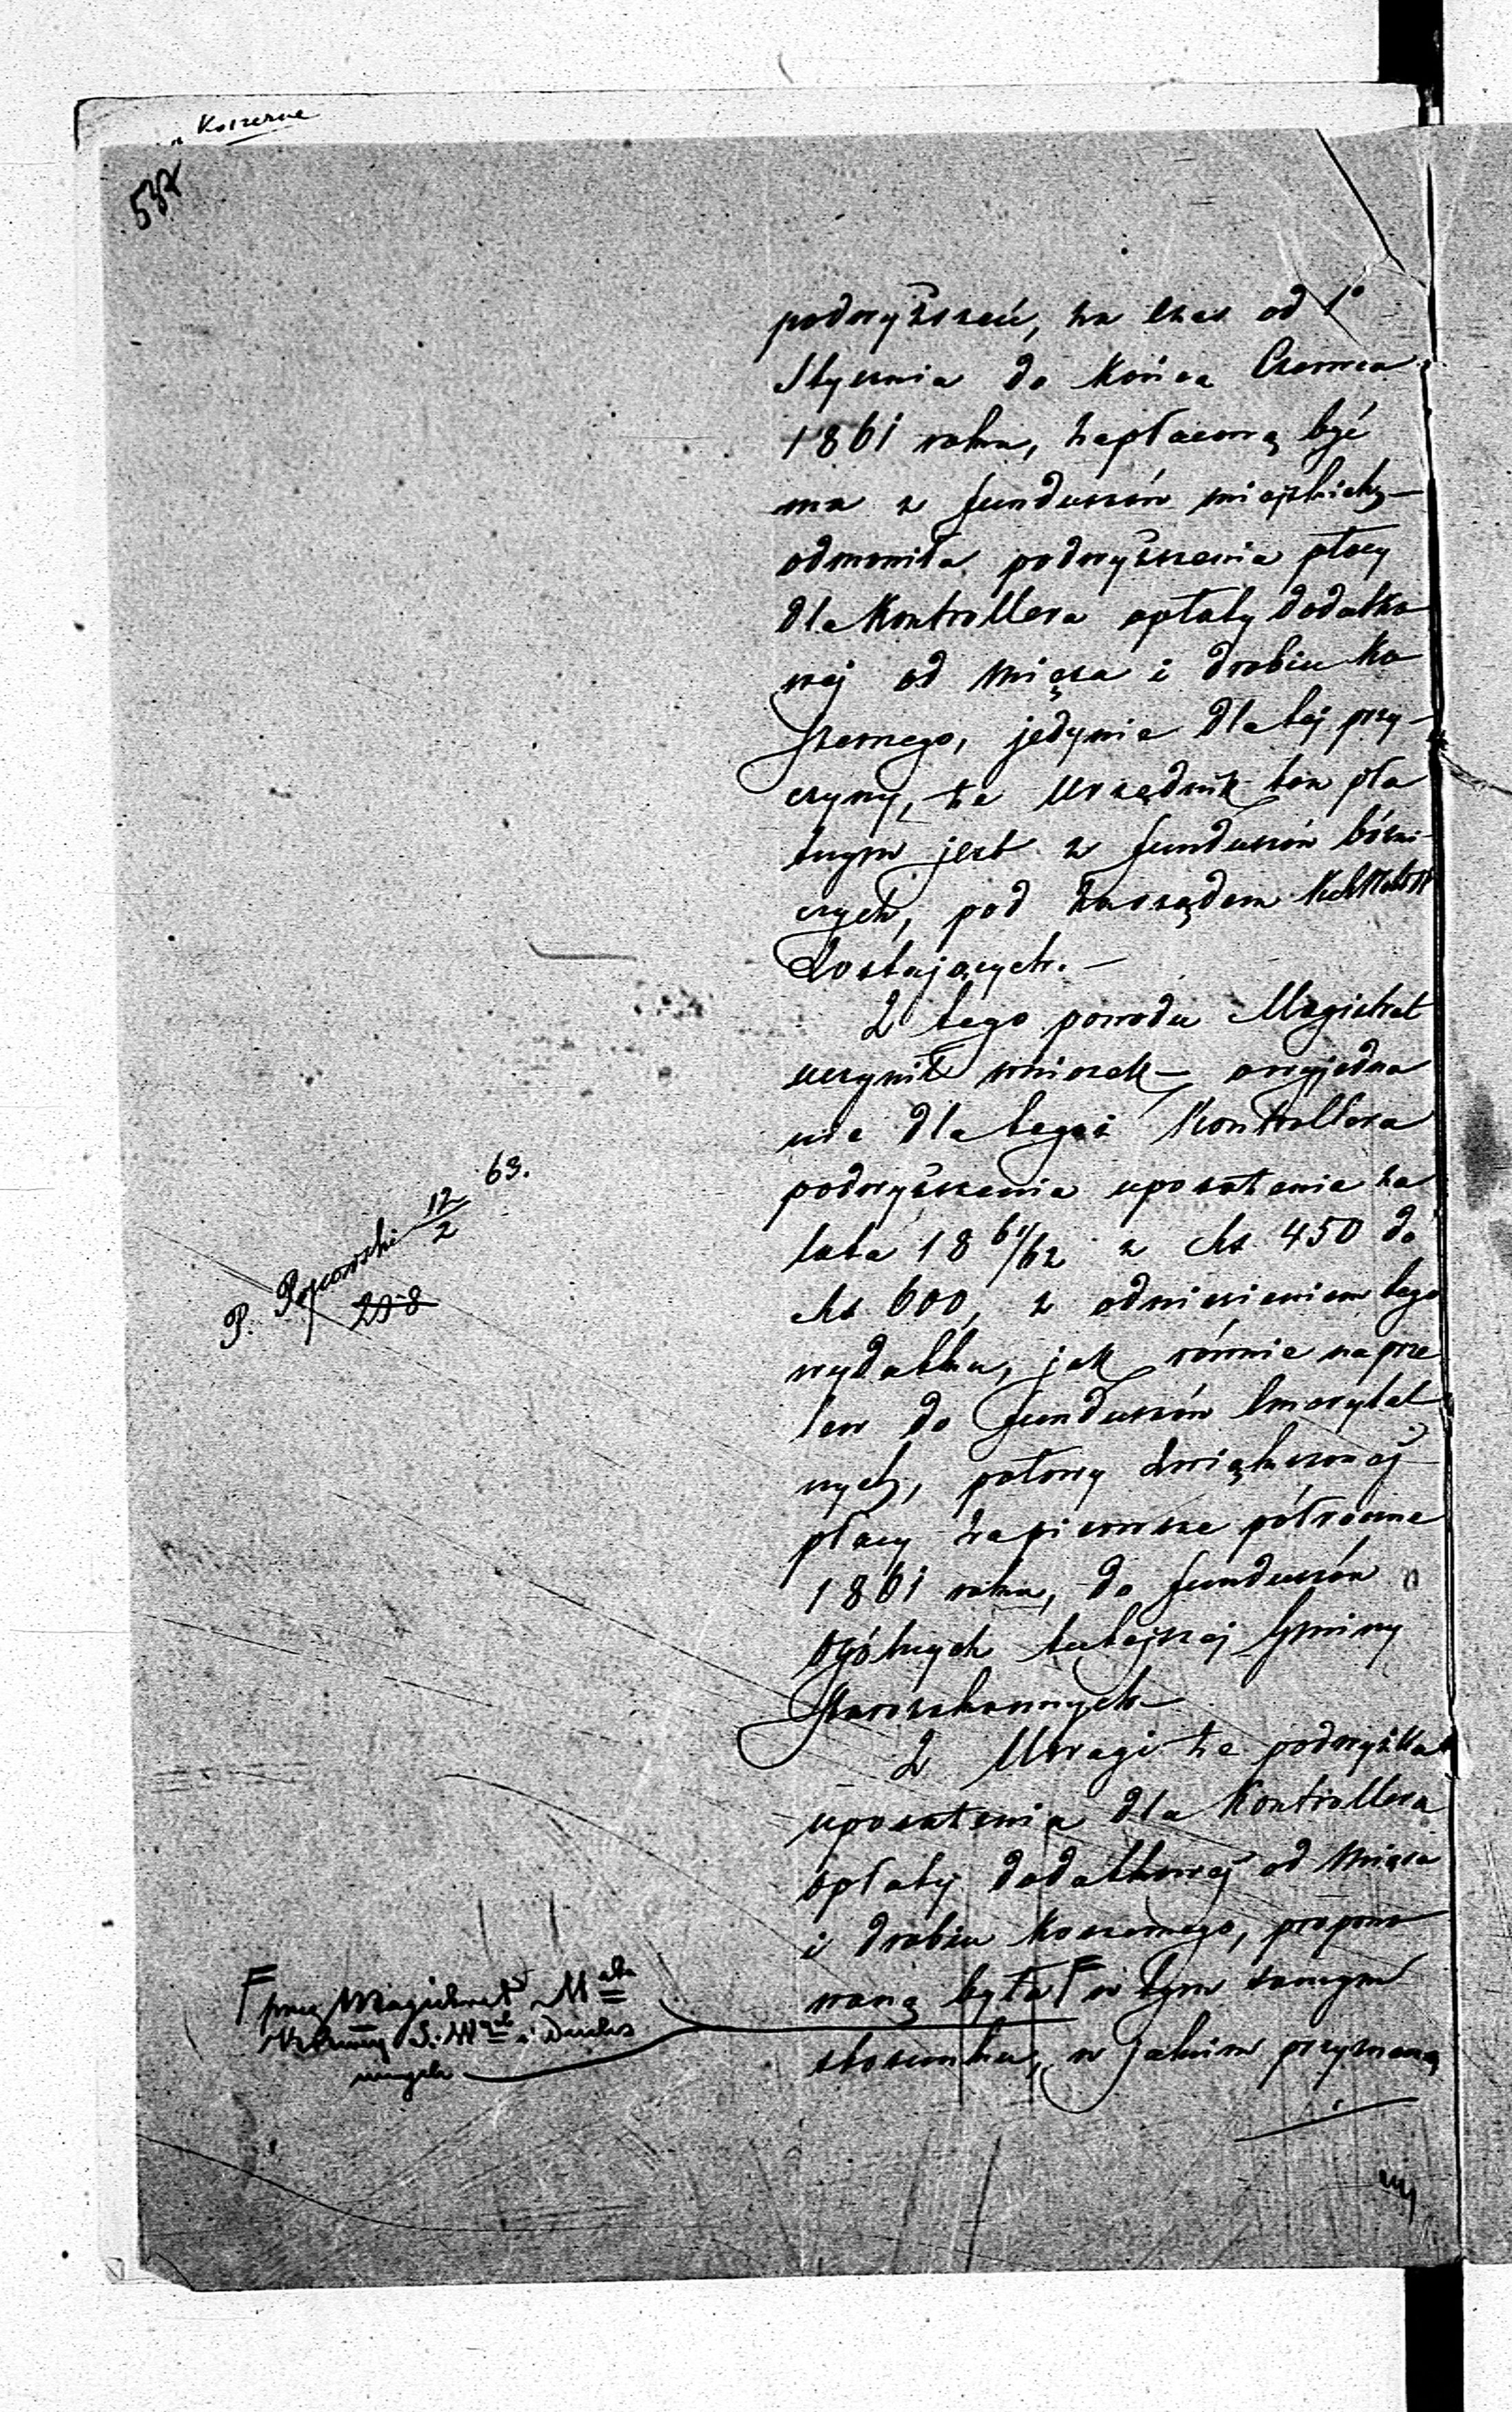 Koszerne
537
podwyższeń, za czas od 1º
Stycznia do końca Czerwca
1861 roku, zapłaconą być
ma z funduszów miejskich,
odmówiła podwyższenia płacy
dla Kontrollera opłaty dodatko
wej od mięsa i drobiu Ko
szernego, jedynie dla tej przy-
czyny, że Urzędnik ten pła
tnym jest z funduszów bóżni-
czych, pod zarządem
zostających. —
Z tego powodu Magistrat
uczynił wniosek o wyjedna
nie dla tegoż Kontrollera
podwyższenia uposażenia za
lata 18 61/62 z Rs 450 do
Rs 600, z odniesieniem tego
wydatku, jak równie na prze
lew do funduszów Emerytal
nych, połowy zwiększonej
płacy za pierwsze półrocze
1861 roku, do funduszów
ogólnych tutejszej Gminy
Starozakonnych
Z Uwagi że podwyżka
uposażenia dla Kontrollera
opłaty dodatkowej od mięsa
i drobiu Koszernego, propono
waną była F w tym samym
stosunku, w jakim przyznaną
P. Popowski 12/2 63.
F przez Magistrat M